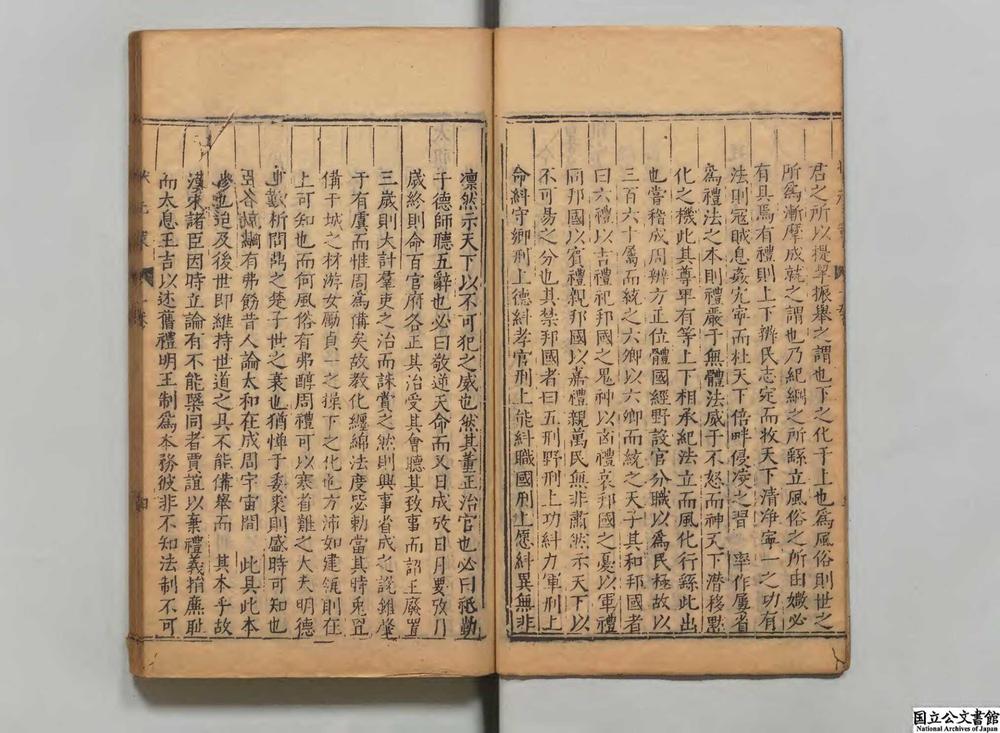 君之所以提挈振舉之謂也下之化于上也爲風俗則世之
所爲漸摩成就之謂也乃紀綱之所繇立風俗之所由媺必
有具焉有禮則上下辨民志定而收天下清淨寧一之功有
法則寇賊息姦宄寧而杜天下倍畔侵凌之習 率作屢省
爲禮法之本則禮嚴于無體法威于不怒而神又下潛移默
化之機此其尊卑有等上下相承紀法立而風化行繇此出
也嘗稽成周辨方正位體國經野設官分職以爲民極故以
三百六十屬而統之六卿以六卿而統之天子其和邦國者
曰六禮以吉禮祀邦國之鬼神以凶禮哀邦國之憂以軍禮
同邦國以賓禮親邦國以嘉禮親萬民無非肅然示天下以
不可易之分也其禁邦國者曰五刑野刑上功糾力軍刑上
命糾守鄉刑上德糾孝官刑上能糾職國刑上愿糾異無非
凛然示天下以不可犯之威也然其董正治官也必曰祗勤
于德師聽五辭也必曰敬逆天命而又日成攷日月要攷月
歲終則命百官府各正其治受其會聽其致事而詔王廢置
三歲則大計羣吏之治而誅賞之然則興事省成之說雖肇
于有虞而惟周爲備矣故教化纏綿法度毖勅當其時兎罝
備干城之材游女勵貞一之操下之化也方沛如建瓴則在
上可知也而何風俗有弗醇周禮可以寒省難之大夫明德
也歎析問鼎之楚子世之衰也猶憚于委裘則盛時可知也
紀綱有弗飭昔人論太和在成周宇宙間 此具此本
也迨及後世即維持世道之具不能備舉而 其本乎故
漢來諸臣因時立論有不能槩同者賈誼以棄禮義捐廉恥
而太息王吉以述舊禮明王制爲本務彼非不知法制不可
国立公文書館
National Archives of Japan